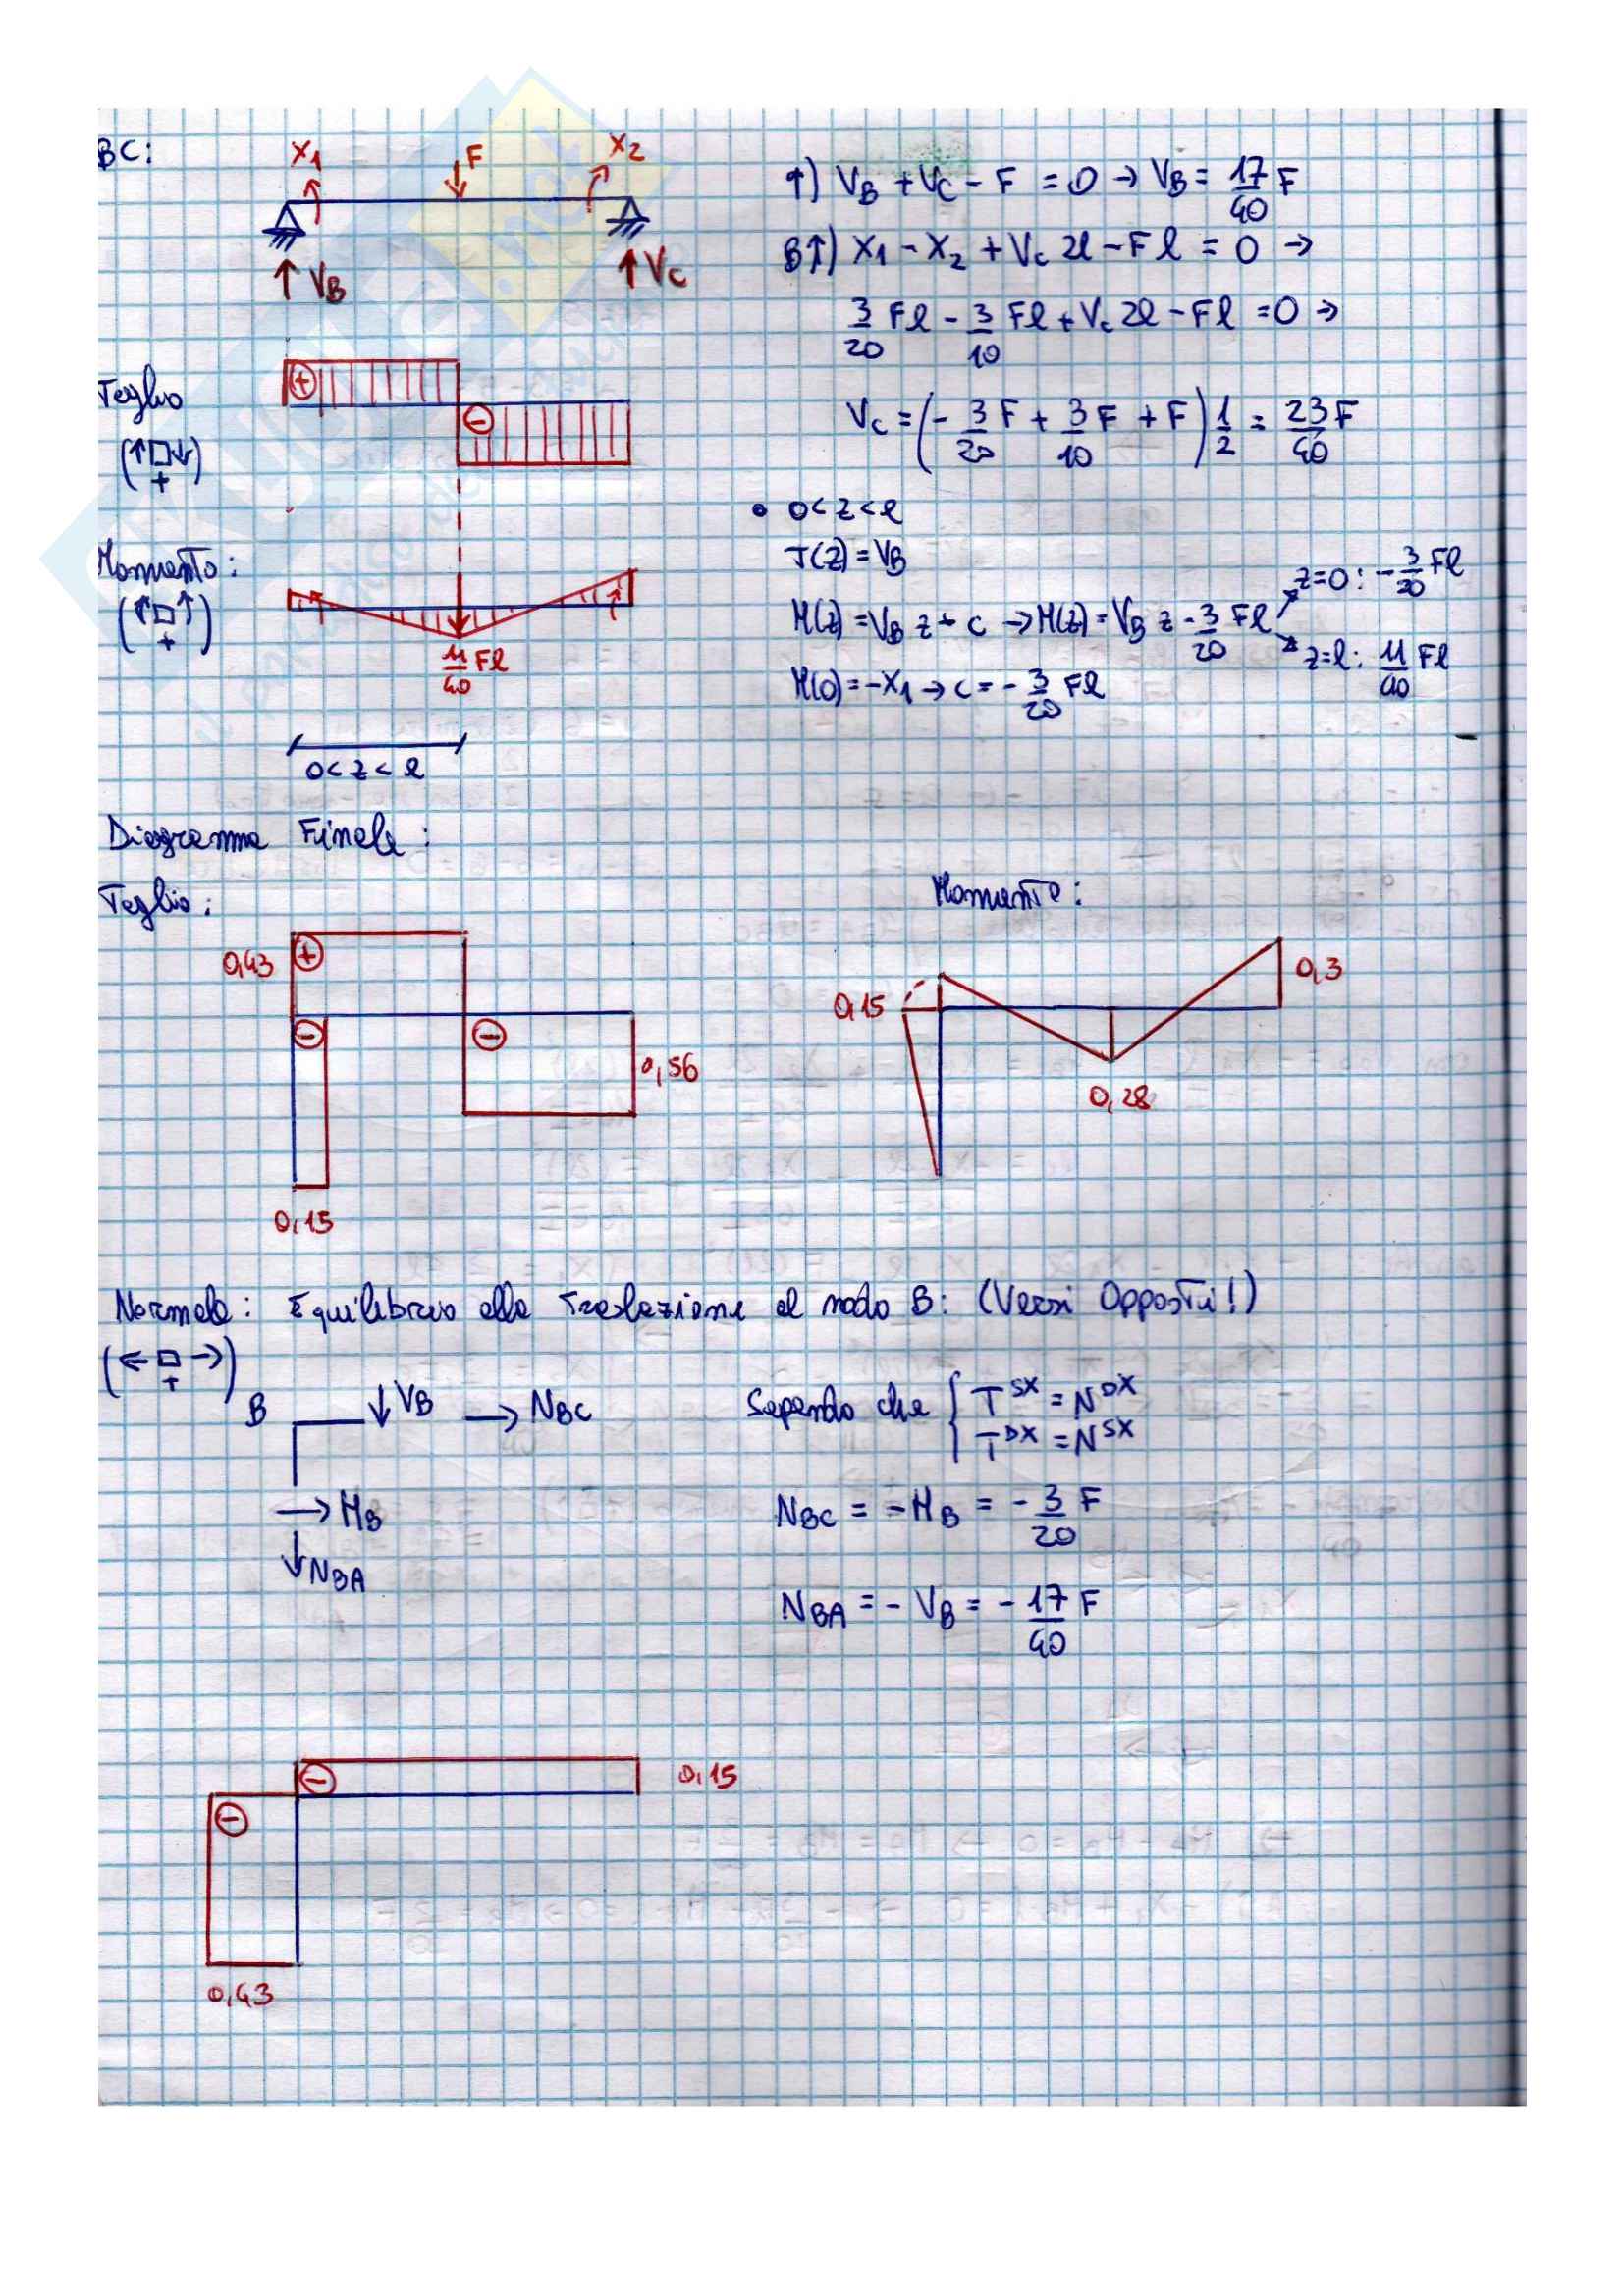 BC:
X1 F X2
VB VC
↑) VB + VC - F = 0 → VB = 17/40 F
B↑) X1 - X2 + Vc 2l - Fl = 0 →
3/20 Fl - 3/10 Fl + Vc 2l - Fl = 0 →
Vc = (- 3/20 F + 3/10 F + F) 1/2 = 23/40 F
Taglio
(↑□↓)
+
+
-
• 0<z<l
T(z) = VB
M(z) = VB z + c → M(z) = VB z - 3/20 Fl
z=0: - 3/20 Fl
z=l: 11/40 Fl
M(0) = -X1 → c = - 3/20 Fl
Momento:
(↑□↑)
+
11/40 Fl
0<z<l
Diagramma Finale:
Taglio:
0,43
+
-
-
0,56
0,15
Momento:
0,15
0,3
0,28
Normale: Equilibrio alla Traslazione al nodo B: (Versi Opposti!)
(←□→)
+
B VB → NBC
→ HB
↓ NBA
Sapendo che { T^SX = N^DX
T^DX = N^SX
NBC = -HB = - 3/20 F
NBA = - VB = - 17/40 F
-
0,15
-
0,43